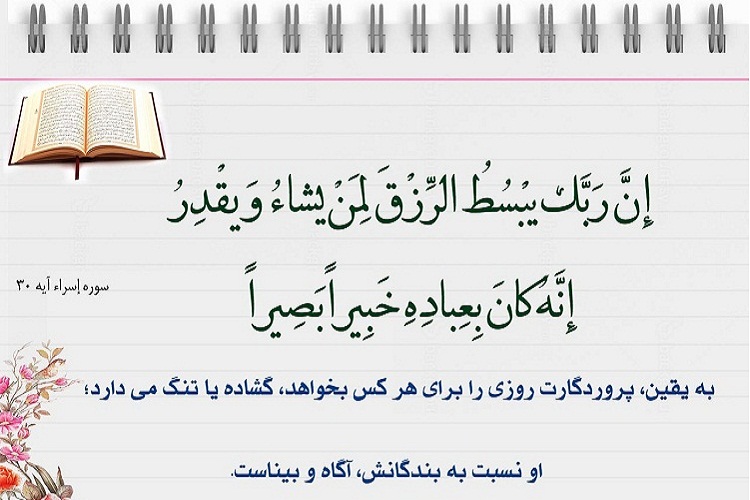 إِنَّ رَبَّكَ يَبْسُطُ الرِّزْقَ لِمَنْ يَشاءُ وَ يَقْدِرُ
إِنَّهُ كانَ بِعِبادِهِ خَبِيراً بَصِيراً
سوره إسراء آیه ۳۰
به یقین، پروردگارت روزی را برای هر کس بخواهد، گشاده یا تنگ می دارد؛
او نسبت به بندگانش، آگاه و بیناست.